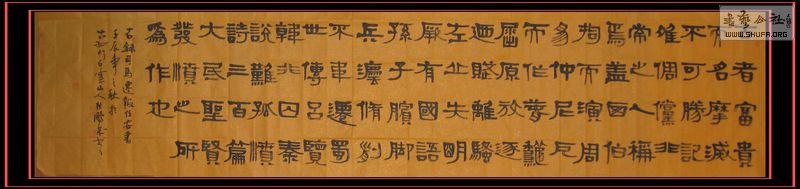 者富貴
而名摩滅
不可勝記
唯倜儻非
常之人稱
焉蓋西伯
拘而演周
易仲尼厄
而作春秋
屈原放逐
迺賦離騷
左丘失明
厥有國語
孫子臏脚
兵灋脩列
不韋遷蜀
世傳呂覽
韓非囚秦
說難孤憤
詩三百篇
大氐聖賢
發憤之所
為作也
右錄司馬遷報任安書
壬辰年之秋於
白雲山人
WWW.SHUFA.ORG